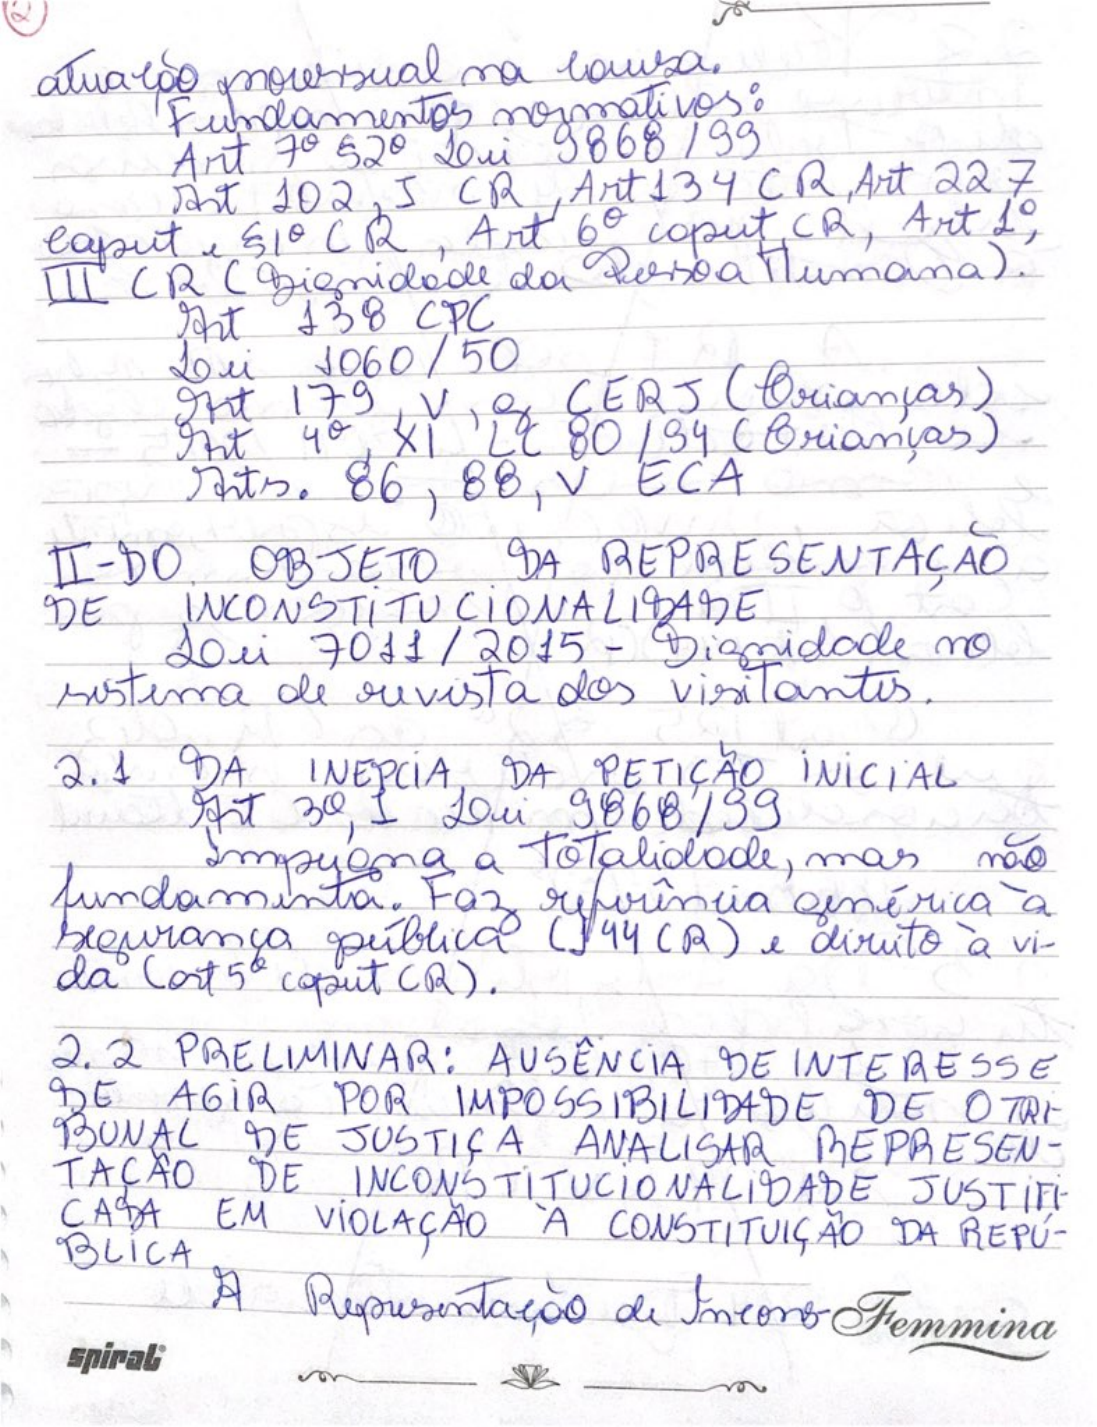 2
atuação processual na causa.
Fundamentos normativos:
Art 7º §2º Lei 9868/99
Art 102, I CR, Art 134 CR, Art 227
caput e §1º CR, Art 6º caput CR, Art 1º,
III CR (Dignidade da Pessoa Humana).
Art 138 CPC
Lei 1060/50
Art 179, V, g CERJ (Crianças)
Art 4º, XI LC 80/94 (Crianças)
Arts. 86, 88, V ECA
II-DO OBJETO DA REPRESENTAÇÃO
DE INCONSTITUCIONALIDADE
Lei 7011/2015 - Dignidade no
sistema de revista dos visitantes.
2.1 DA INÉPCIA DA PETIÇÃO INICIAL
Art 3º, I Lei 9868/99
Impugna a totalidade, mas não
fundamenta. Faz referência genérica à
segurança pública (144 CR) e direito à vi-
da (art 5º caput CR).
2.2 PRELIMINAR: AUSÊNCIA DE INTERESSE
DE AGIR POR IMPOSSIBILIDADE DE O TRI-
BUNAL DE JUSTIÇA ANALISAR REPRESEN-
TAÇÃO DE INCONSTITUCIONALIDADE JUSTIFI-
CADA EM VIOLAÇÃO À CONSTITUIÇÃO DA REPÚ-
BLICA
A Representação de Incons-
Femmina
spiral